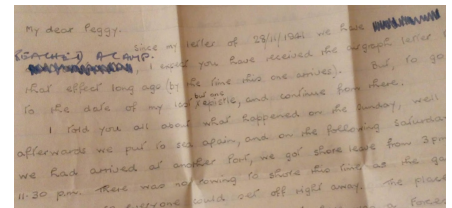 My dear Peggy.
Since my letter of 28/11/1941 we have
REACHED A CAMP.
I expect you have received the airgraph letter
that effect long ago (by the time this one arrives). But, to go
to the date of my last but one epistle, and continue from there.
I told you all about what happened on the Sunday, well
afterwards we put to sea again, and on the following Saturday
we had arrived at another port, we got shore leave from 3pm
11-30 pm. There was no rowing to shore this time, as the
everyone could get off right away. The place
a